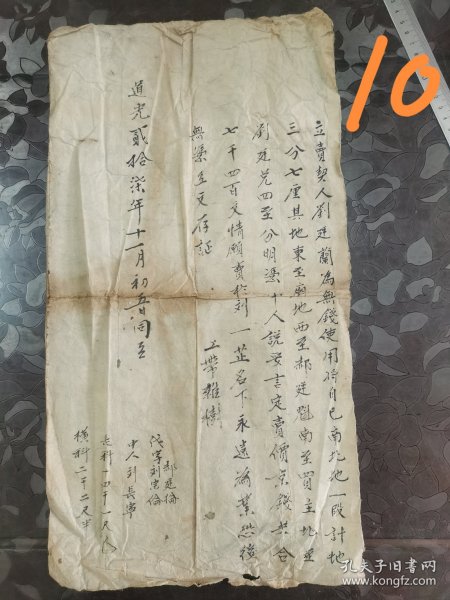 立賣契人劉廷蘭為無錢使用將自己南北地一段計地
三分七厘其地東至廟地西至郝廷凱南至買主北至
劉廷見四至分明憑中人說妥言定賣價京錢共合
七千四百文情願賣於劉一芷名下永遠為業恐後
無憑立文存証
上帶雜樹
道光貳拾柒年十一月初五日同立
郝廷倫
代字劉宏倫
中人劉長寧
長科一四十一尺
橫科二十二尺半
10
孔夫子旧书网
www.kongfz.com